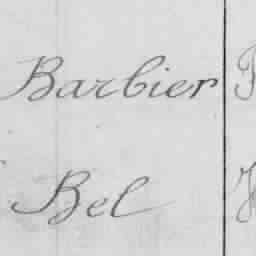 Barbier
Bel